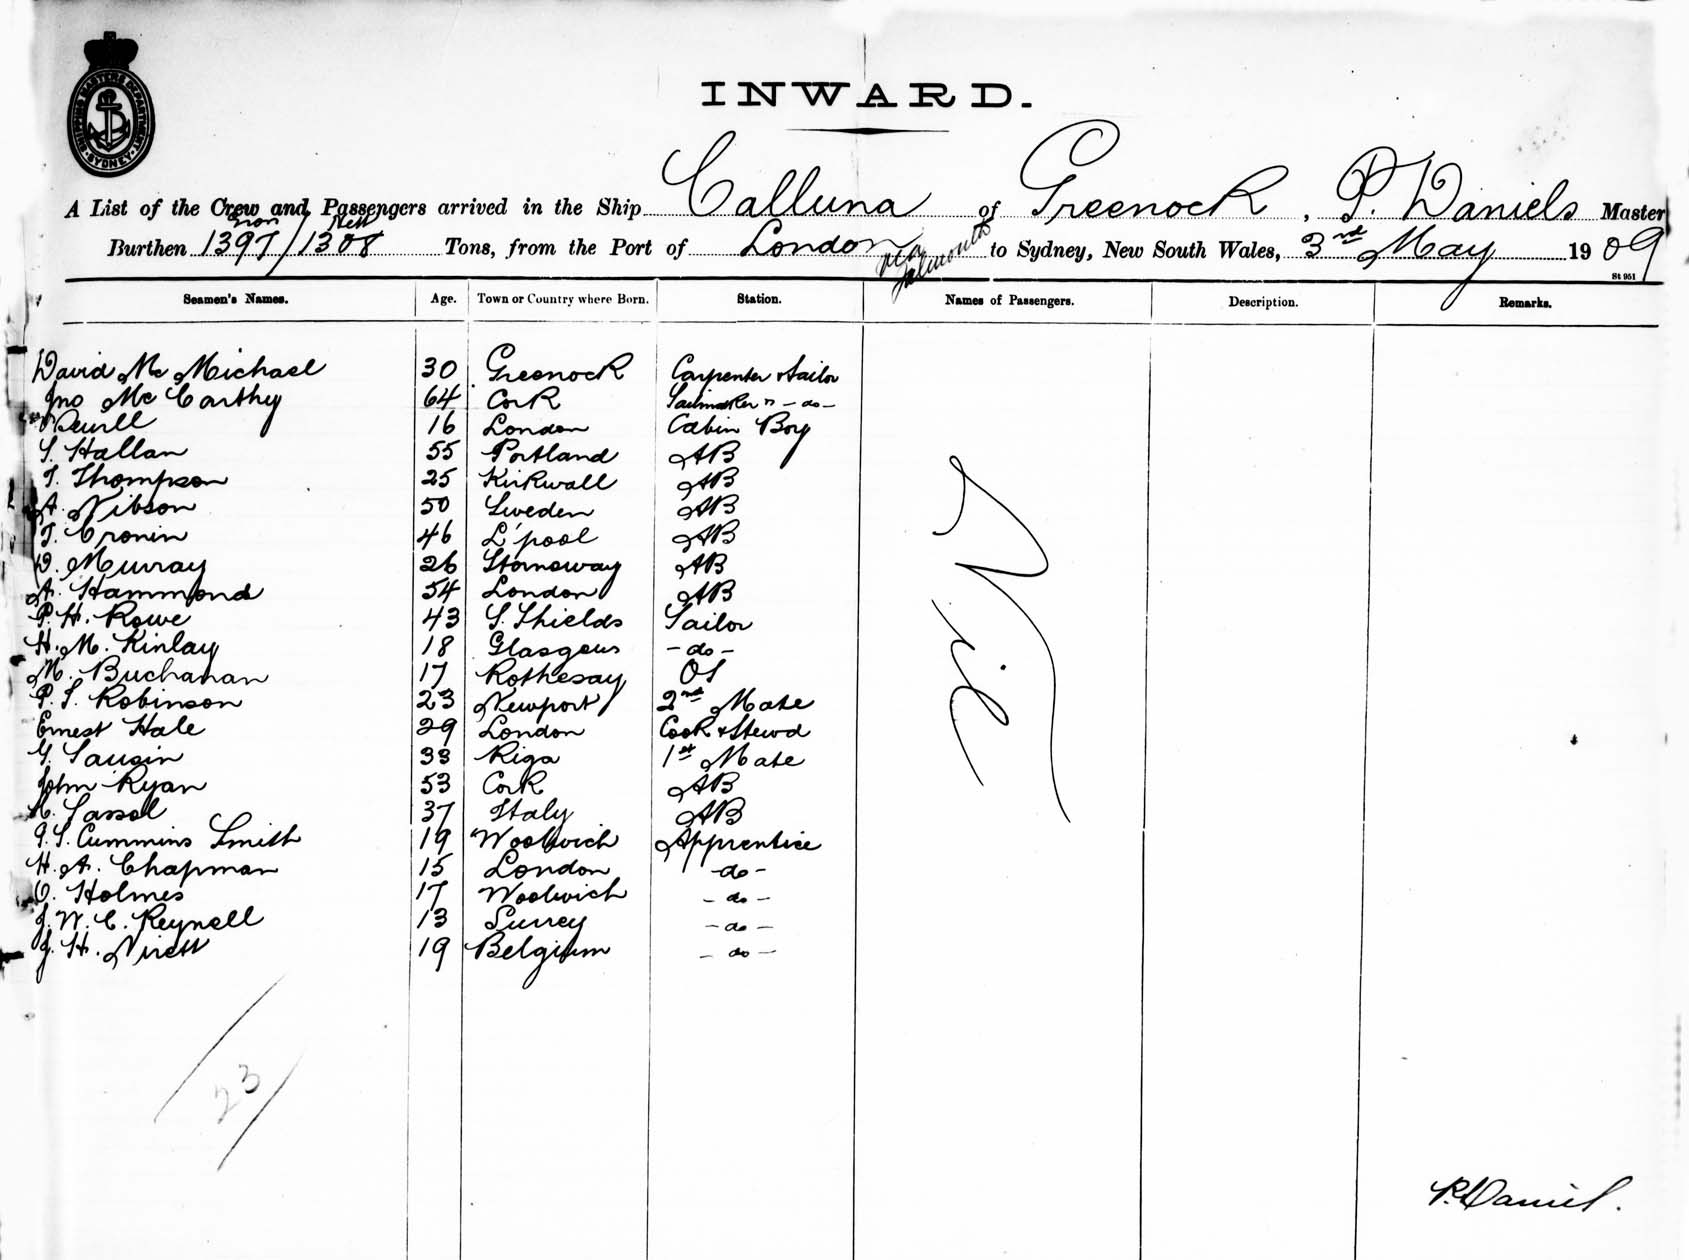 SHIPPING MASTERS DEPARTMENT SYDNEY
INWARD.
A List of the Crew and Passengers arrived in the Ship Calluna of Greenock, P. Daniels Master
Burthen 1397/1308 Nett Tons, from the Port of London via Falmouth to Sydney, New South Wales, 3rd May 1909
St 951
Seamen's Names. Age. Town or Country where Born. Station. Names of Passengers. Description. Remarks.
David Mc Michael 30 Greenock Carpenter & Sailor
Jno Mc Carthy 64 Cork Sailmaker " - do -
16 London Cabin Boy
S. Hallan 55 Portland AB
T. Thompson 25 Kirkwall AB
A. Nilsson 50 Sweden AB
T. Cronin 46 L'pool AB
D. Murray 26 Stornoway AB
A. Hammond 54 London AB
P. H. Rowe 43 S. Shields Sailor
H. M. Kinlay 18 Glasgow - do -
M. Buchanan 17 Rothesay OS
P. S. Robinson 23 Newport 2nd Mate
Ernest Hale 29 London Cook & Stewd
G. Sausin 33 Riga 1st Mate
John Ryan 53 Cork AB
Sassol 37 Italy AB
Cummins Smith 19 Woolwich Apprentice
H. A. Chapman 15 London - do -
O. Holmes 17 Woolwich - do -
J. W. C. Reynell 13 Surrey - do -
J. H. 19 Belgium - do -
Nil
23
P. Daniel.